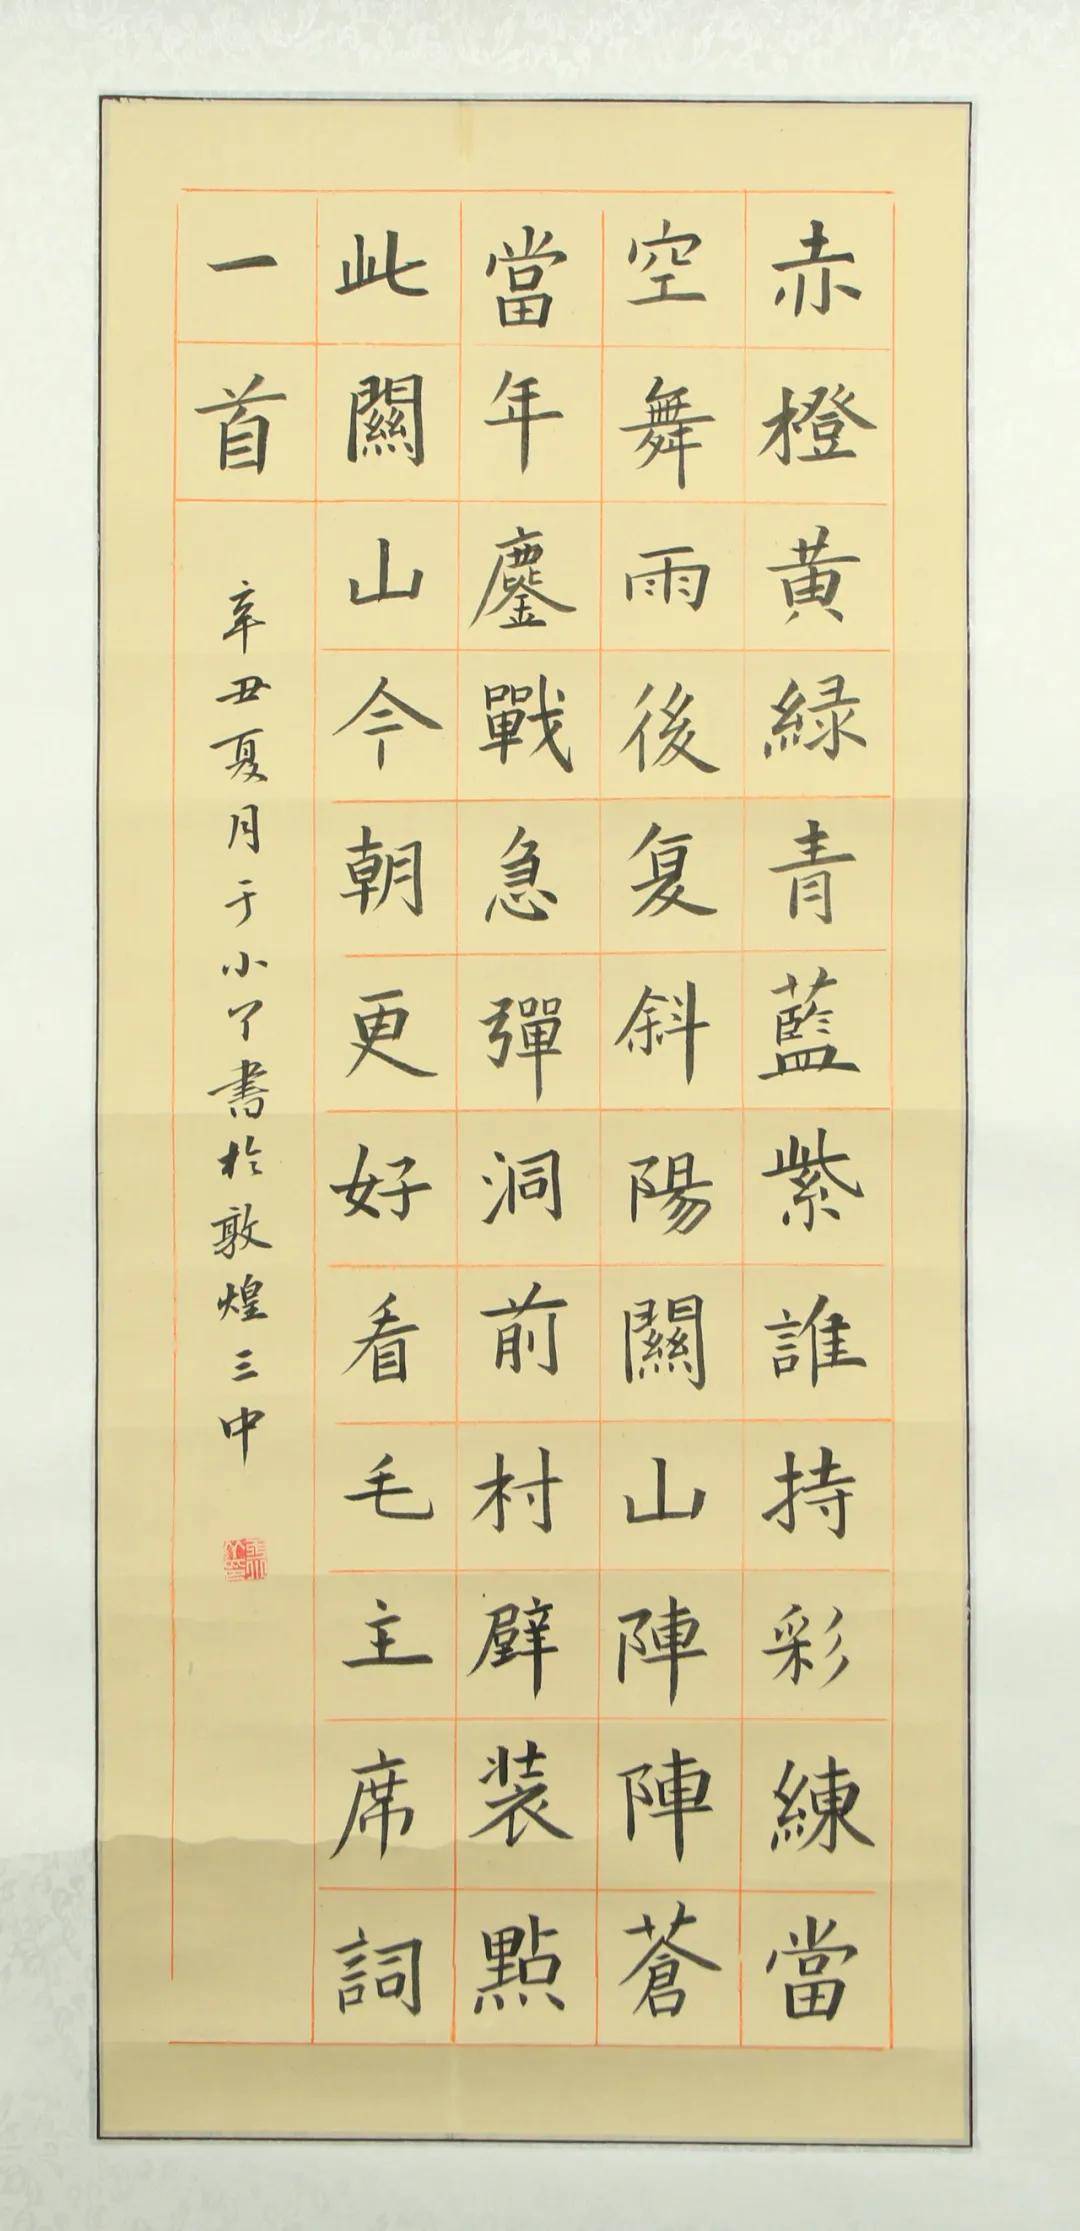 赤橙黄緑青藍紫誰持彩練當
空舞雨後复斜陽關山陣陣蒼
當年鏖戰急彈洞前村壁装點
此關山今朝更好看毛主席詞
一首
辛丑夏月于小丫書於敦煌三中